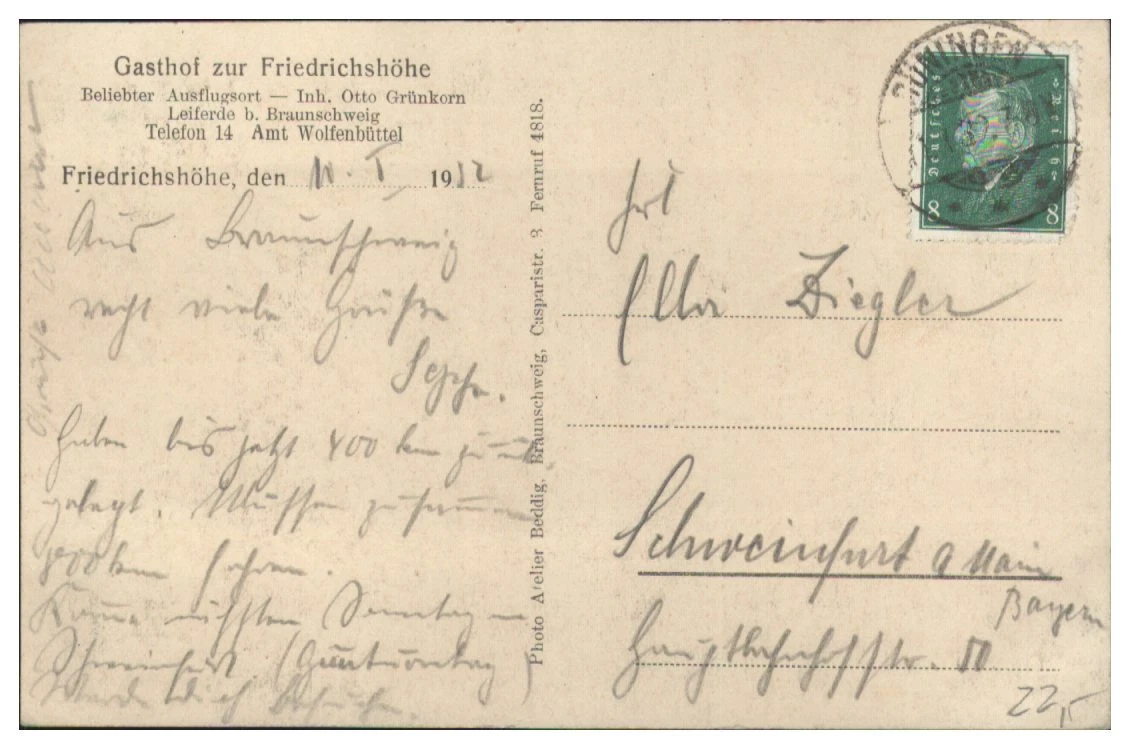 Gasthof zur Friedrichshöhe
Beliebter Ausflugsort — Inh. Otto Grünkorn
Leiferde b. Braunschweig
Telefon 14 Amt Wolfenbüttel
Friedrichshöhe, den 11. I 1932
Aus Braunschweig
recht viele Grüße
haben bis jetzt 400 km zurück
gelegt. Müssen zusammen
800 km fahren.
nächsten Sonntag
Schweinfurt.
Werde Dich besuchen.
Photo Atelier Beddig, Braunschweig, Casparistr. 3 Fernruf 4818.
Deutsches Reich
8 8
Frl
Ella Ziegler
Schweinfurt a Main
Bayern
Hauptbahnhofstr.
22,-